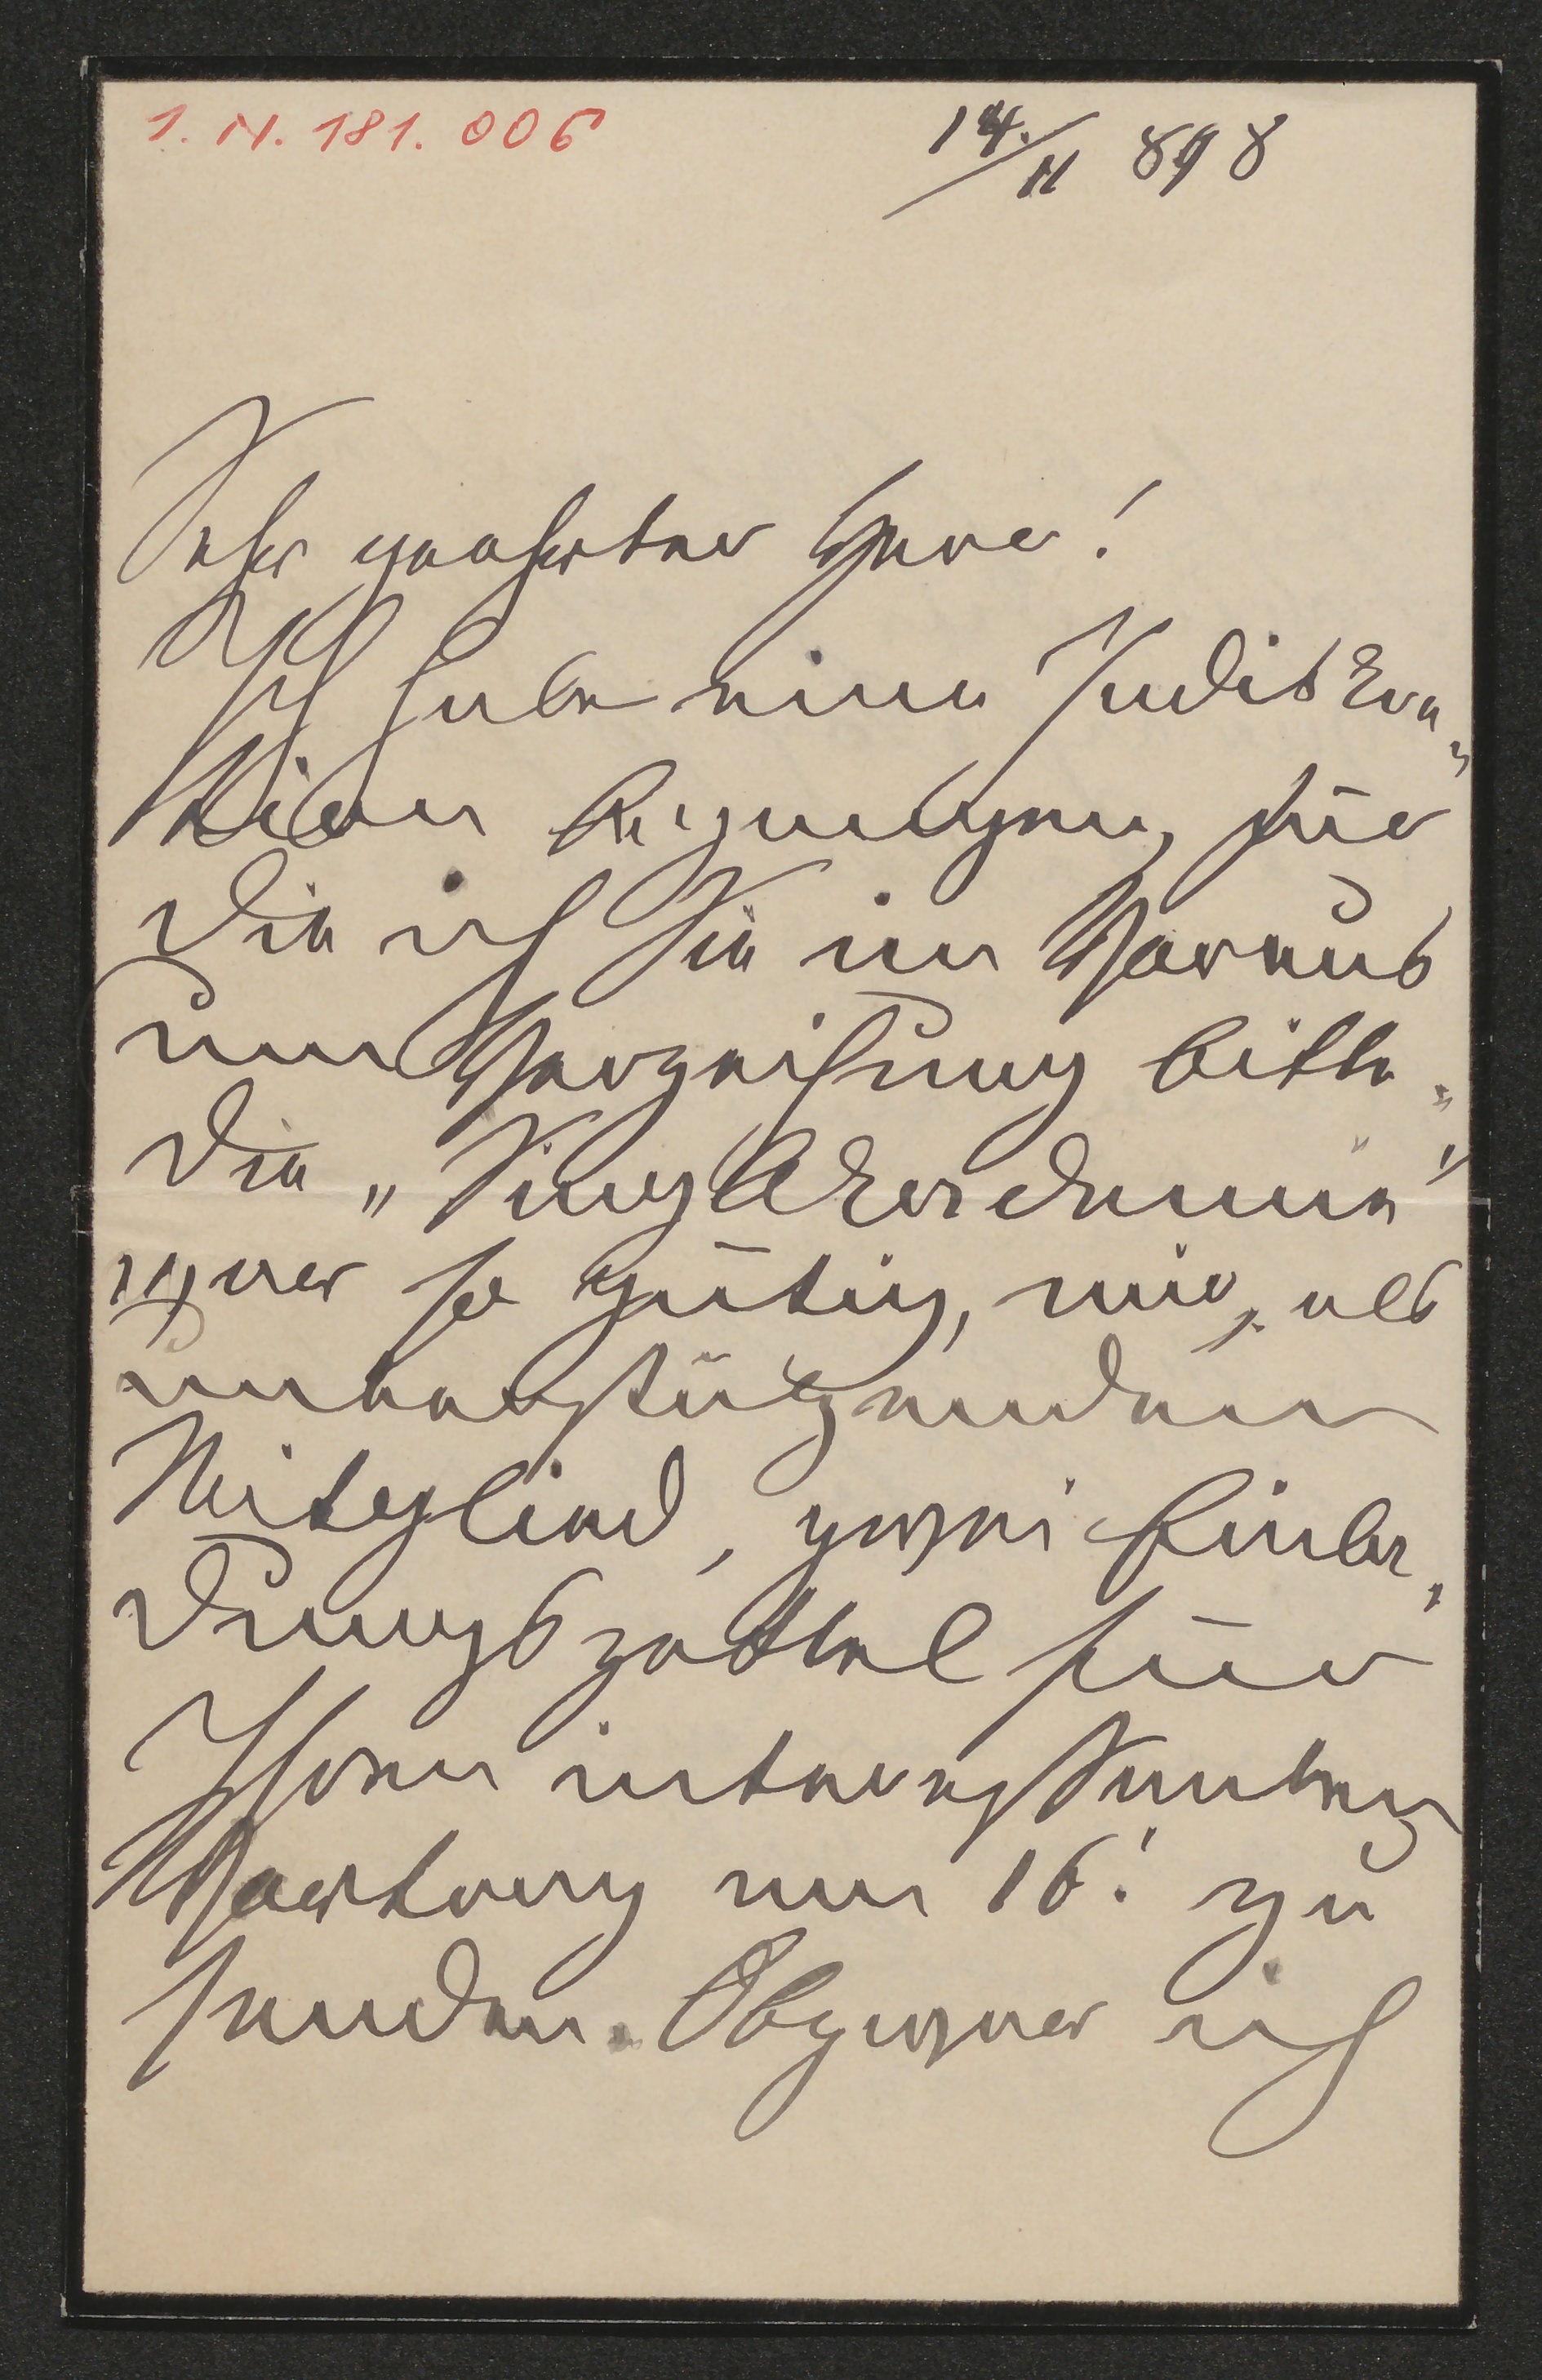 I. N. 181.006
14./II 898
Sehr geehrter Herr!
Ich habe eine Indiskre„
tion begangen, für
die ich Sie im Voraus
um Verzeihung bitte„
die „Singakademie“
war so gütig, mir, als
unterstützendem
Mitglied, zwei Einla„
dungszettel für
Ihren interessanten
Vortrag am 16! zu
senden. Obzwar ich